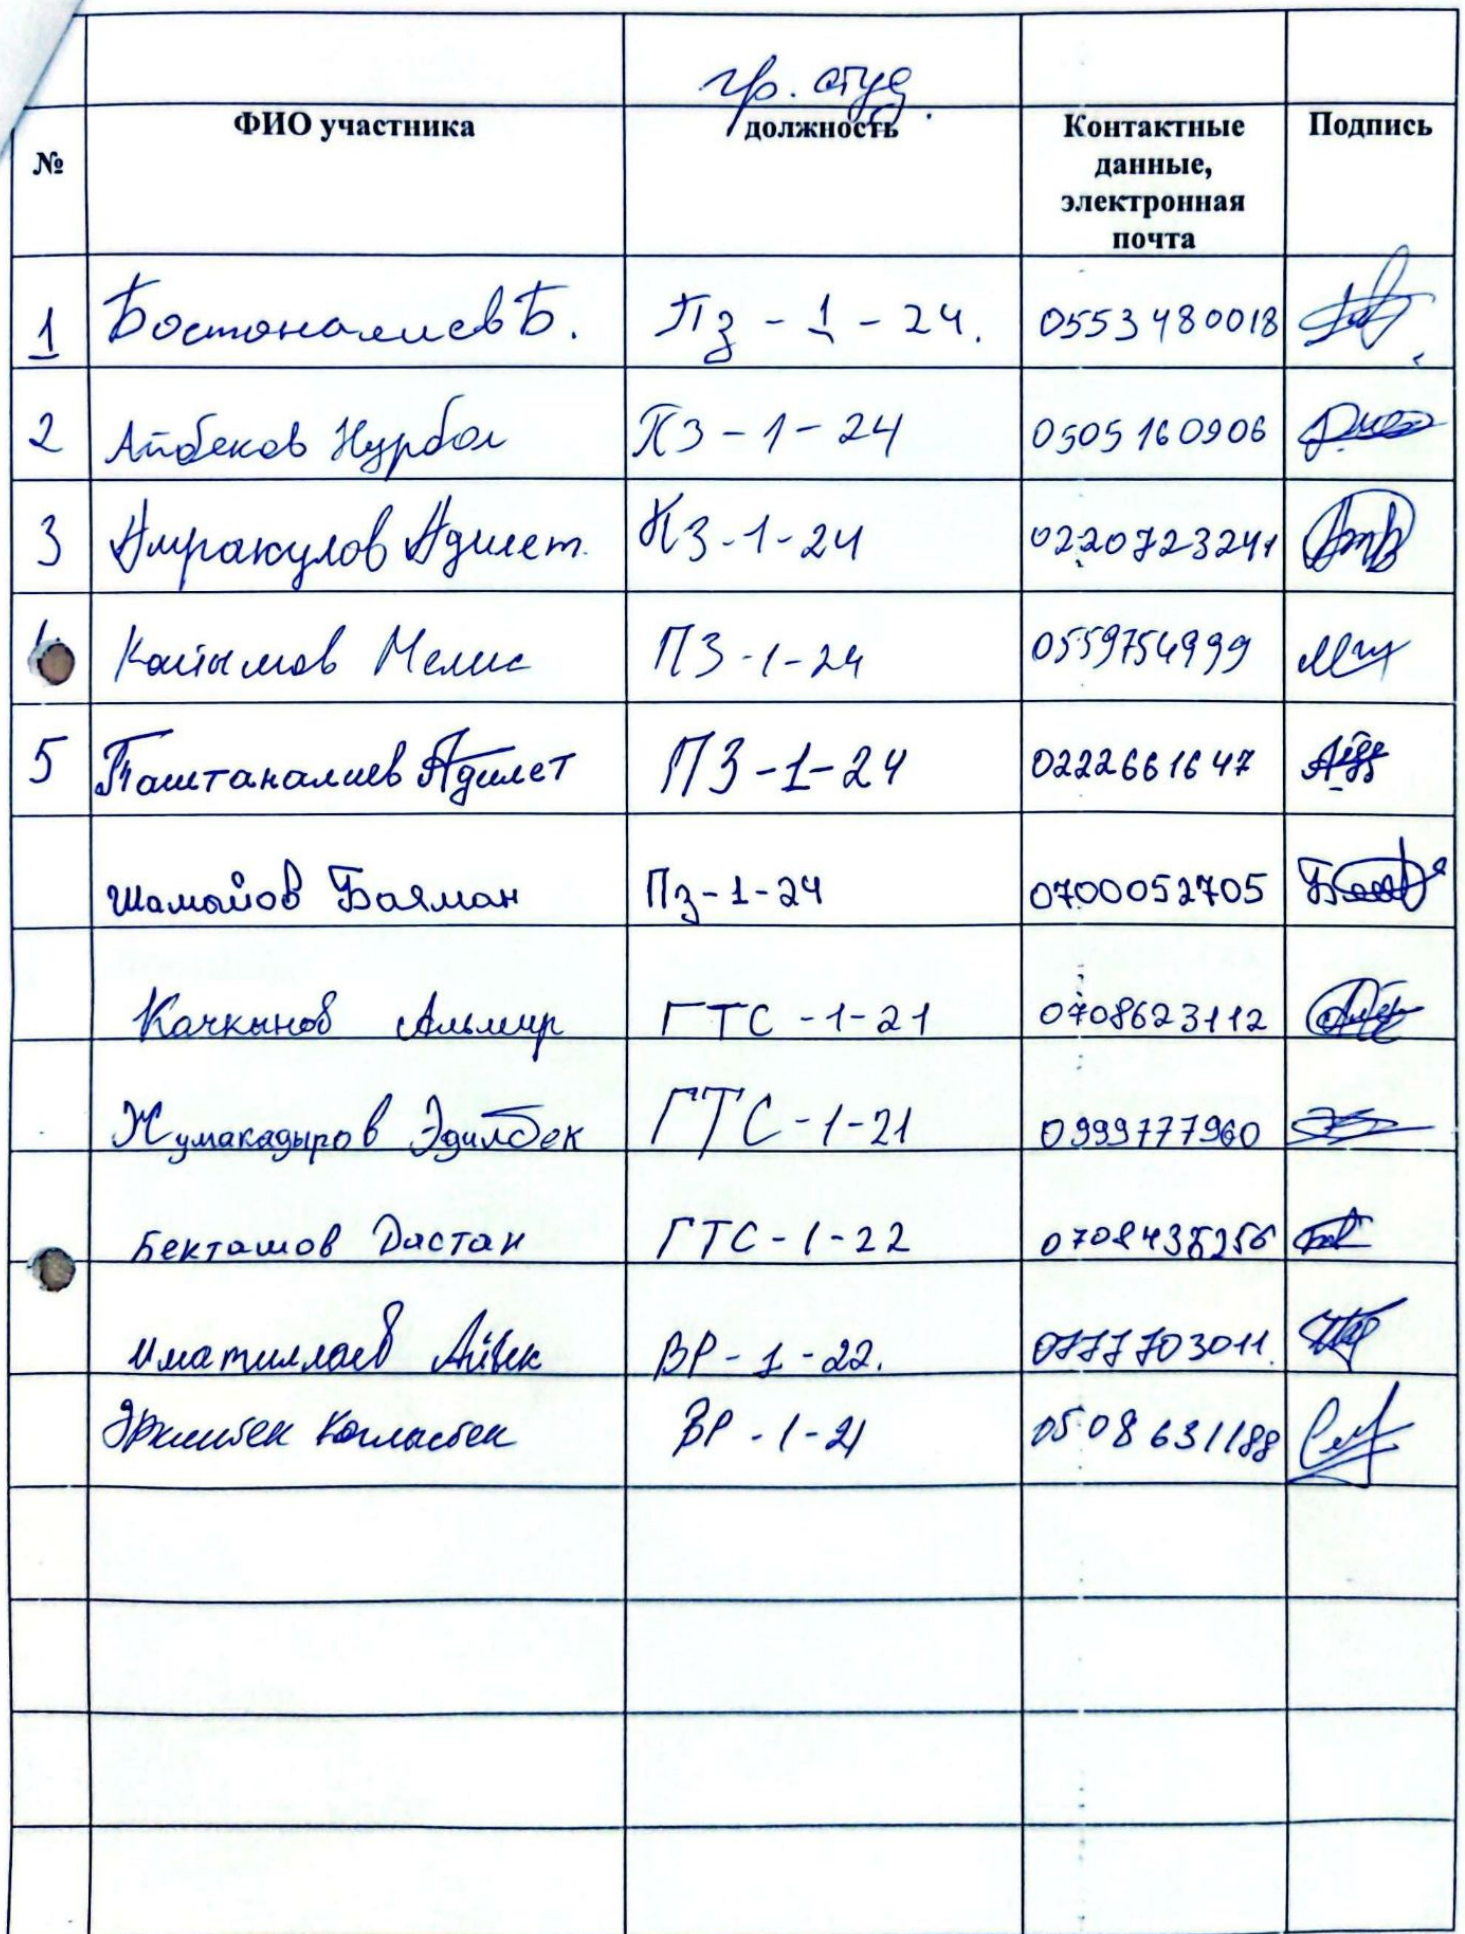 гр. студ.
№ ФИО участника должность Контактные данные, электронная почта Подпись
1 Бостоналиев Б. Пз - 1 - 24. 0553480018
2 Айбеков Нурбол ПЗ - 1 - 24 0505160906
3 Амракулов Адилет. ПЗ-1-24 0220723241
Кайымов Мелис ПЗ-1-24 0559754999
5 Таштаналиев Адилет ПЗ-1-24 0222661647
Шамыйов Баяман Пз-1-24 0700052705
Качкынов Альмир ГТС-1-21 0708623112
Жумакадыров Эдилбек ГТС-1-21 0999777960
Бекташов Дастан ГТС-1-22
Иматиллаев ВР-1-22. 0777703011.
ВР-1-21 0508631188